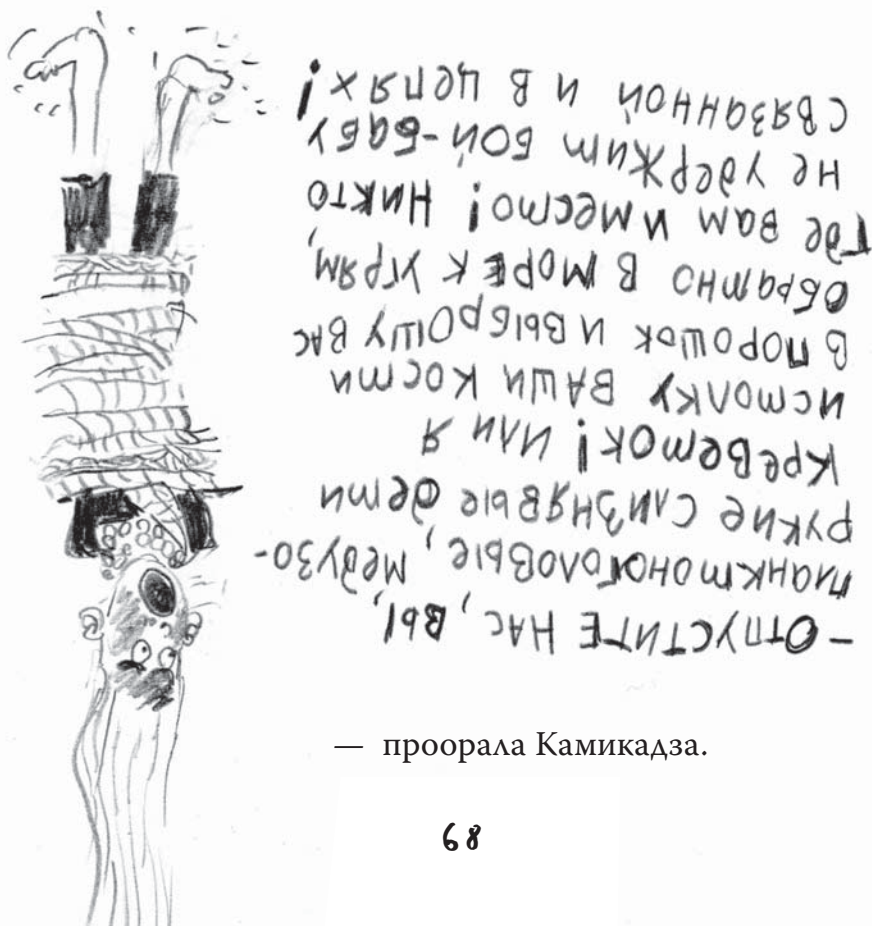 – ОТПУСТИТЕ НАС, ВЫ,
планктоноголовые, медузо-
рукие слизнявые дети
креветок! Или я
истолку ваши кости
в порошок и выброшу вас
обратно в море к угрям,
где вам и место! Никто
не удержит бой-бабу
связанной и в цепях!
— проорала Камикадза.
68